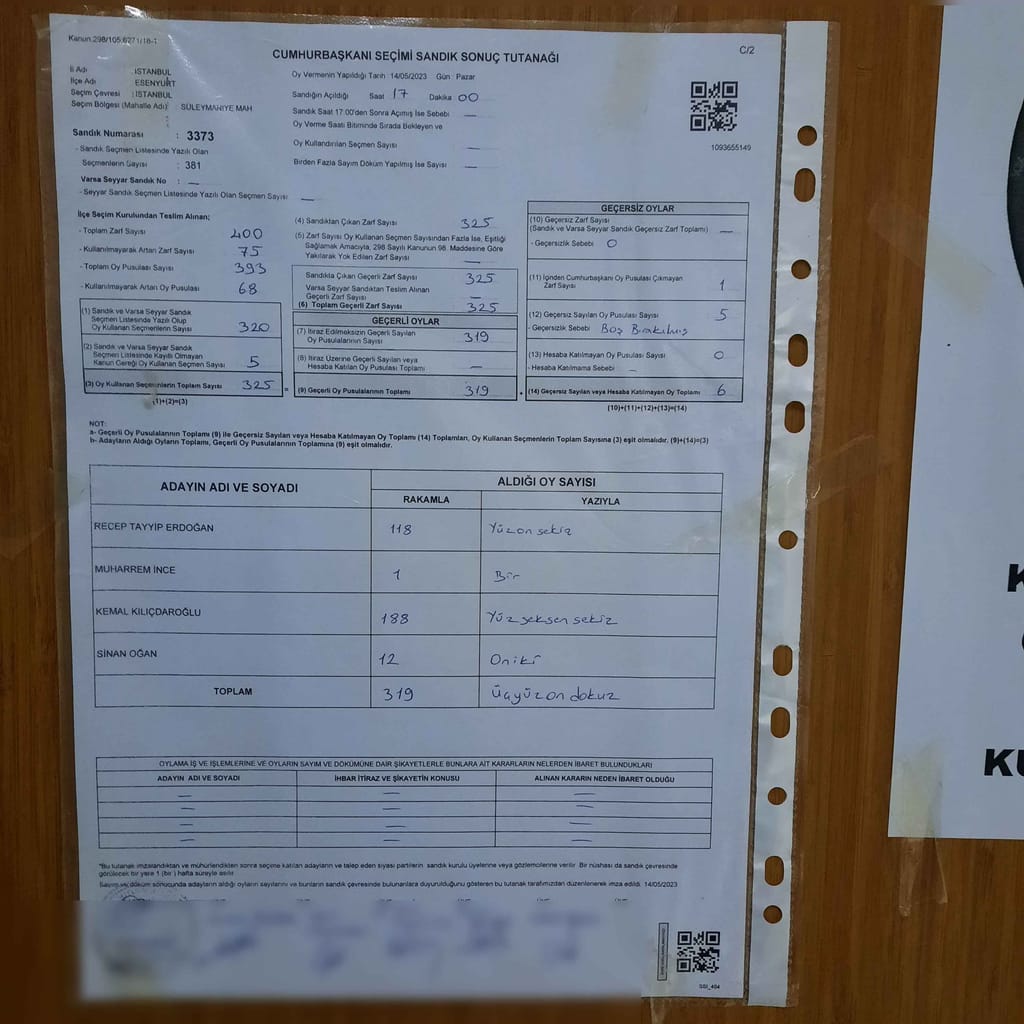 Kanun.298/105,6271/18-1
C/2
CUMHURBAŞKANI SEÇİMİ SANDIK SONUÇ TUTANAĞI
İl Adı : İSTANBUL
İlçe Adı : ESENYURT
Seçim Çevresi : İSTANBUL
Seçim Bölgesi (Mahalle Adı) : SÜLEYMANİYE MAH
Sandık Numarası : 3373
- Sandık Seçmen Listesinde Yazılı Olan
Seçmenlerin Sayısı : 381
Varsa Seyyar Sandık No : —
- Seyyar Sandık Seçmen Listesinde Yazılı Olan Seçmen Sayısı —
Oy Vermenin Yapıldığı Tarih 14/05/2023 Gün : Pazar
Sandığın Açıldığı Saat 17 Dakika 00
Sandık Saat 17:00'den Sonra Açılmış İse Sebebi —
Oy Verme Saati Bitiminde Sırada Bekleyen ve
Oy Kullandırılan Seçmen Sayısı —
Birden Fazla Sayım Döküm Yapılmış İse Sayısı —
1093655149
İlçe Seçim Kurulundan Teslim Alınan;
- Toplam Zarf Sayısı 400
- Kullanılmayarak Artan Zarf Sayısı 75
- Toplam Oy Pusulası Sayısı 393
- Kullanılmayarak Artan Oy Pusulası 68
(1) Sandık ve Varsa Seyyar Sandık
Seçmen Listesinde Yazılı Olup
Oy Kullanan Seçmenlerin Sayısı 320
(2) Sandık ve Varsa Seyyar Sandık
Seçmen Listesinde Kayıtlı Olmayan
Kanun Gereği Oy Kullanan Seçmen Sayısı 5
(3) Oy Kullanan Seçmenlerin Toplam Sayısı 325 =
(1)+(2)=(3)
(4) Sandıktan Çıkan Zarf Sayısı 325
(5) Zarf Sayısı Oy Kullanan Seçmen Sayısından Fazla İse, Eşitliği
Sağlamak Amacıyla, 298 Sayılı Kanunun 98. Maddesine Göre
Yakılarak Yok Edilen Zarf Sayısı —
Sandıkta Çıkan Geçerli Zarf Sayısı 325
Varsa Seyyar Sandıktan Teslim Alınan
Geçerli Zarf Sayısı —
(6) Toplam Geçerli Zarf Sayısı 325
GEÇERLİ OYLAR
(7) İtiraz Edilmeksizin Geçerli Sayılan
Oy Pusulasının Sayısı 319
(8) İtiraz Üzerine Geçerli Sayılan veya
Hesaba Katılan Oy Pusulası Toplamı —
(9) Geçerli Oy Pusulalarının Toplamı 319 +
GEÇERSİZ OYLAR
(10) Geçersiz Zarf Sayısı
(Sandık ve Varsa Seyyar Sandık Geçersiz Zarf Toplamı) —
- Geçersizlik Sebebi 0
(11) İçinden Cumhurbaşkanı Oy Pusulası Çıkmayan
Zarf Sayısı 1
(12) Geçersiz Sayılan Oy Pusulası Sayısı 5
- Geçersizlik Sebebi Boş Bırakılmış
(13) Hesaba Katılmayan Oy Pusulası Sayısı 0
- Hesaba Katılmama Sebebi —
(14) Geçersiz Sayılan veya Hesaba Katılmayan Oy Toplamı 6
(10)+(11)+(12)+(13)=(14)
NOT:
a- Geçerli Oy Pusulalarının Toplamı (9) ile Geçersiz Sayılan veya Hesaba Katılmayan Oy Toplamı (14) Toplamları, Oy Kullanan Seçmenlerin Toplam Sayısına (3) eşit olmalıdır. (9)+(14)=(3)
b- Adayların Aldığı Oyların Toplamı, Geçerli Oy Pusulalarının Toplamına (9) eşit olmalıdır.
ADAYIN ADI VE SOYADI
ALDIĞI OY SAYISI
RAKAMLA YAZIYLA
RECEP TAYYİP ERDOĞAN 118 Yüzon sekiz
MUHARREM İNCE 1 Bir
KEMAL KILIÇDAROĞLU 188 Yüz seksen sekiz
SİNAN OĞAN 12 Oniki
TOPLAM 319 Üçyüzon dokuz
OYLAMA İŞ VE İŞLEMLERİNE VE OYLARIN SAYIM VE DÖKÜMÜNE DAİR ŞİKAYETLERLE BUNLARA AİT KARARLARIN NELERDEN İBARET BULUNDUKLARI
ADAYIN ADI VE SOYADI İHBAR İTİRAZ VE ŞİKAYETİN KONUSU ALINAN KARARIN NEDEN İBARET OLDUĞU
— — —
— — —
— — —
— — —
*Bu tutanak imzalandıktan ve mühürlendikten sonra seçime katılan adayların ve talep eden siyasi partilerin sandık kurulu üyelerine veya gözlemcilerine verilir. Bir nüshası da sandık çevresinde
görülecek bir yere 1 (bir) hafta süreyle asılır.
Sayım ve döküm sonucunda adayların aldığı oyların sayılarını ve bunların sandık çevresinde bulunanlara duyurulduğunu gösteren bu tutanak tarafımızdan düzenlenerek imza edildi. 14/05/2023
SSI_404
K
KU